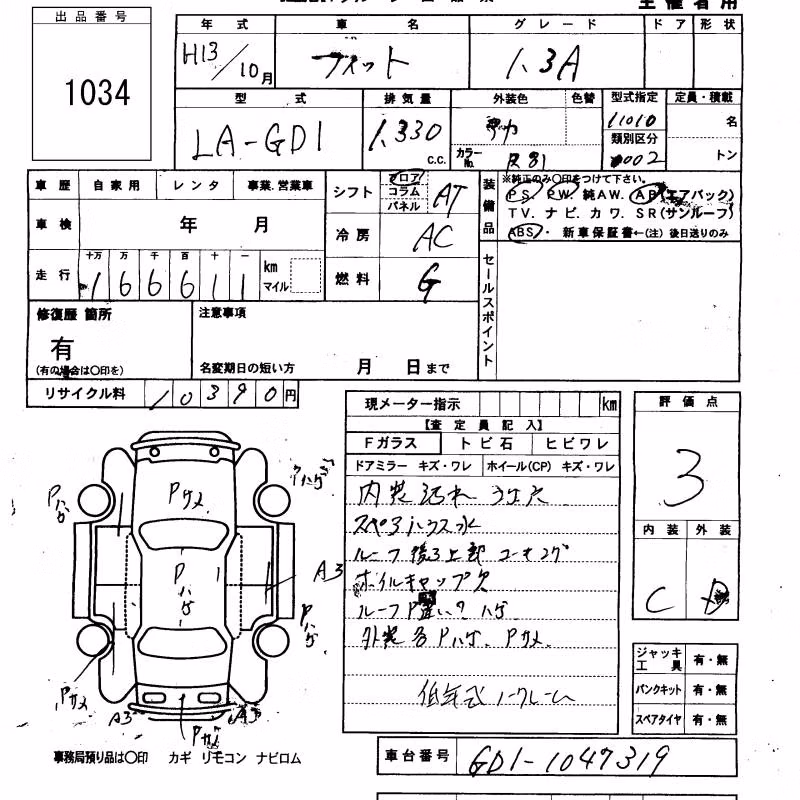 出品番号
1034
主催者用
年式 車名 グレード ドア 形状
H13/10月 フィット 1.3A
型式 排気量 外装色 色替 型式指定 定員・積載
LA-GD1 1.330 c.c. 11010 名
カラーNo. R81 類別区分 0002 トン
車歴 自家用 レンタ 事業.営業車
車検 年 月
走行 十万 万 千 百 十 一 km マイル
166611
シフト フロア コラム パネル AT
冷房 AC
燃料 G
装備品
※純正のみ〇印をつけて下さい。
PS. PW. 純AW. AB(エアバック)
TV. ナビ. カワ. SR(サンルーフ)
ABS・ 新車保証書←(注)後日送りのみ
セールスポイント
修復歴 箇所
有
(有の場合は〇印を)
注意事項
名変期日の短い方 月 日まで
リサイクル料 10390円
現メーター指示 km
【査定員記入】
Fガラス トビ石 ヒビワレ
ドアミラー キズ・ワレ ホイール(CP) キズ・ワレ
内装汚れ
ルーフ後ろ上部 コーキング
ホイルキャップ欠
ルーフP違い? ハゲ
外装各Pハゲ. Pサメ
ノークレーム
評価点
3
内装 外装
C D
ジャッキ工具 有・無
パンクキット 有・無
スペアタイヤ 有・無
Pサメ
Pハゲ
Pハゲ
A3
Pハゲ
Pサメ
A3
A3
事務局預り品は〇印 カギ リモコン ナビロム
車台番号 GD1-1047319